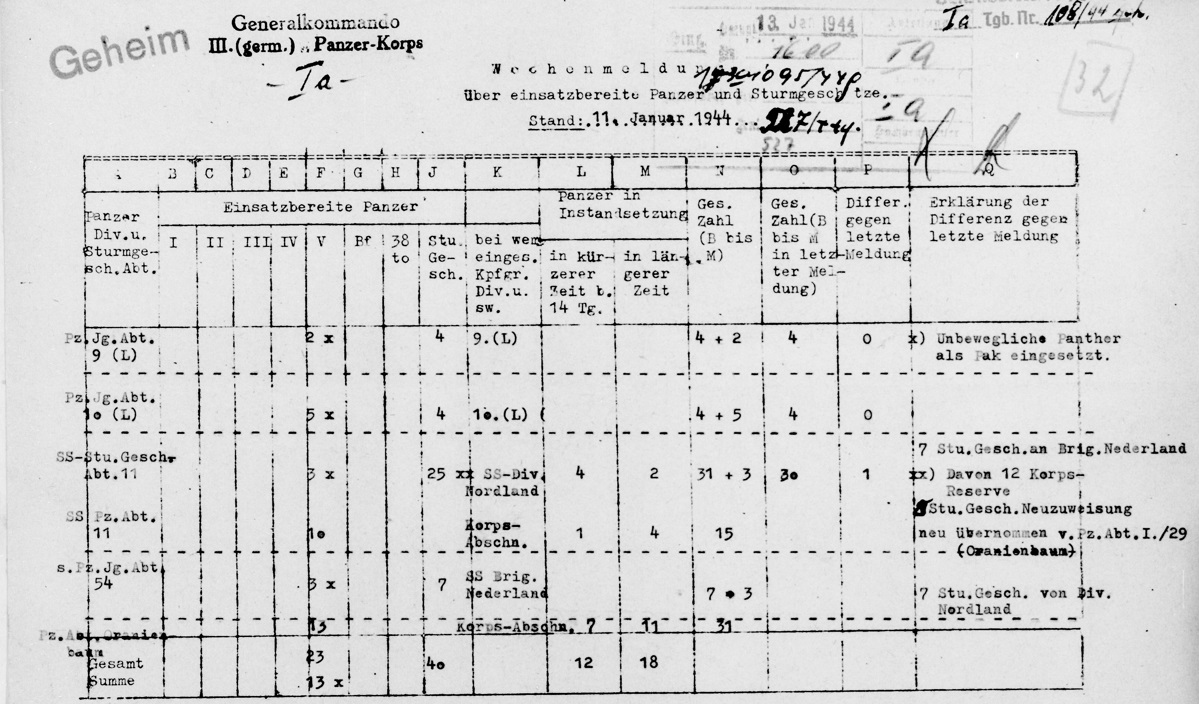 Geheim
Generalkommando
III.(germ.) Panzer-Korps
- Ia -
13. Jan 1944
1600
Ia
Ia Tgb.Nr. 108/44 geh.
32
Wochenmeldung
über einsatzbereite Panzer und Sturmgeschütze.
Stand: 11. Januar 1944
Ia
527
A B C D E F G H J K L M N O P Q
Panzer Div.u. Sturmge- sch.Abt.
Einsatzbereite Panzer
I II III IV V Bf 38 to
Stu. Ge- sch.
bei wem einges. Kpfgr. Div.u. sw.
Panzer in Instandsetzung
in kür- zerer Zeit b. 14 Tg.
in län- gerer Zeit
Ges. Zahl (B bis M)
Ges. Zahl(B bis M in letz- ter Mel- dung)
Differ. gegen letzte Meldung
Erklärung der Differenz gegen letzte Meldung
Pz.Jg.Abt. 2 x 4 9.(L) 4 + 2 4 0 x) Unbewegliche Panther
9 (L) als Pak eingesetzt.
Pz.Jg.Abt.
1o (L) 5 x 4 1o.(L) 4 + 5 4 0
7 Stu.Gesch.an Brig.Nederland
SS-Stu.Gesch.
Abt.11 3 x 25 xx SS-Div. 4 2 31 + 3 3o 1 xx) Davon 12 Korps-
Nordland Reserve
Stu.Gesch.Neuzuweisung
SS Pz.Abt. Korps-
11 1o Abschn. 1 4 15 neu übernommen v.Pz.Abt.I./29
(Oranienbaum)
s.Pz.Jg.Abt. SS Brig.
54 3 x 7 Nederland 7 + 3 7 Stu.Gesch. von Div.
Nordland
Pz.Abt.Oranien- 13 Korps-Abschn. 7 11 31
baum
Gesamt 23 4o 12 18
Summe 13 x